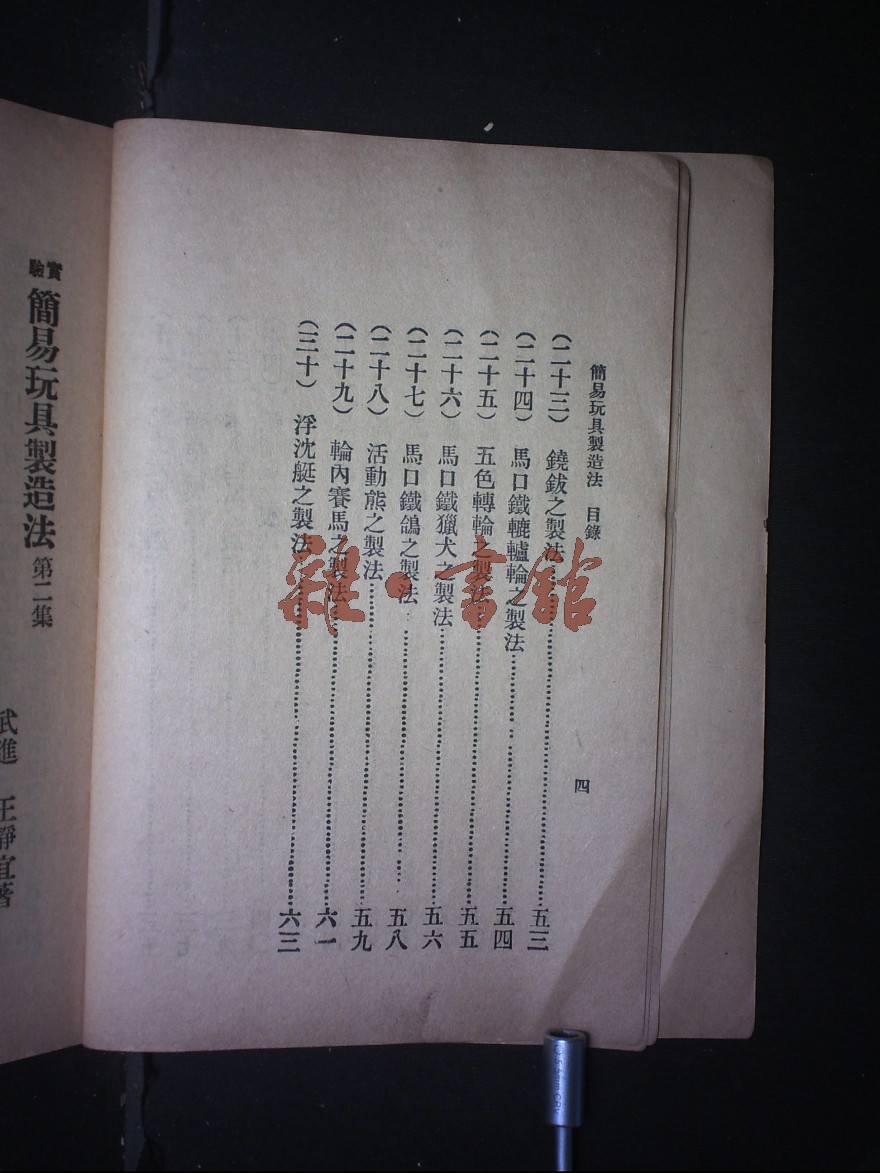 簡易玩具製造法 目錄
四
(二十三) 鐃鈸之製法 五三
(二十四) 馬口鐵轆轤輪之製法 五四
(二十五) 五色轉輪之製法 五五
(二十六) 馬口鐵獵犬之製法 五六
(二十七) 馬口鐵鴿之製法 五八
(二十八) 活動熊之製法 五九
(二十九) 輪內賽馬之製法 六一
(三十) 浮沈艇之製法 六三
實驗
簡易玩具製造法 第二集
武進 王靜宜著
書館